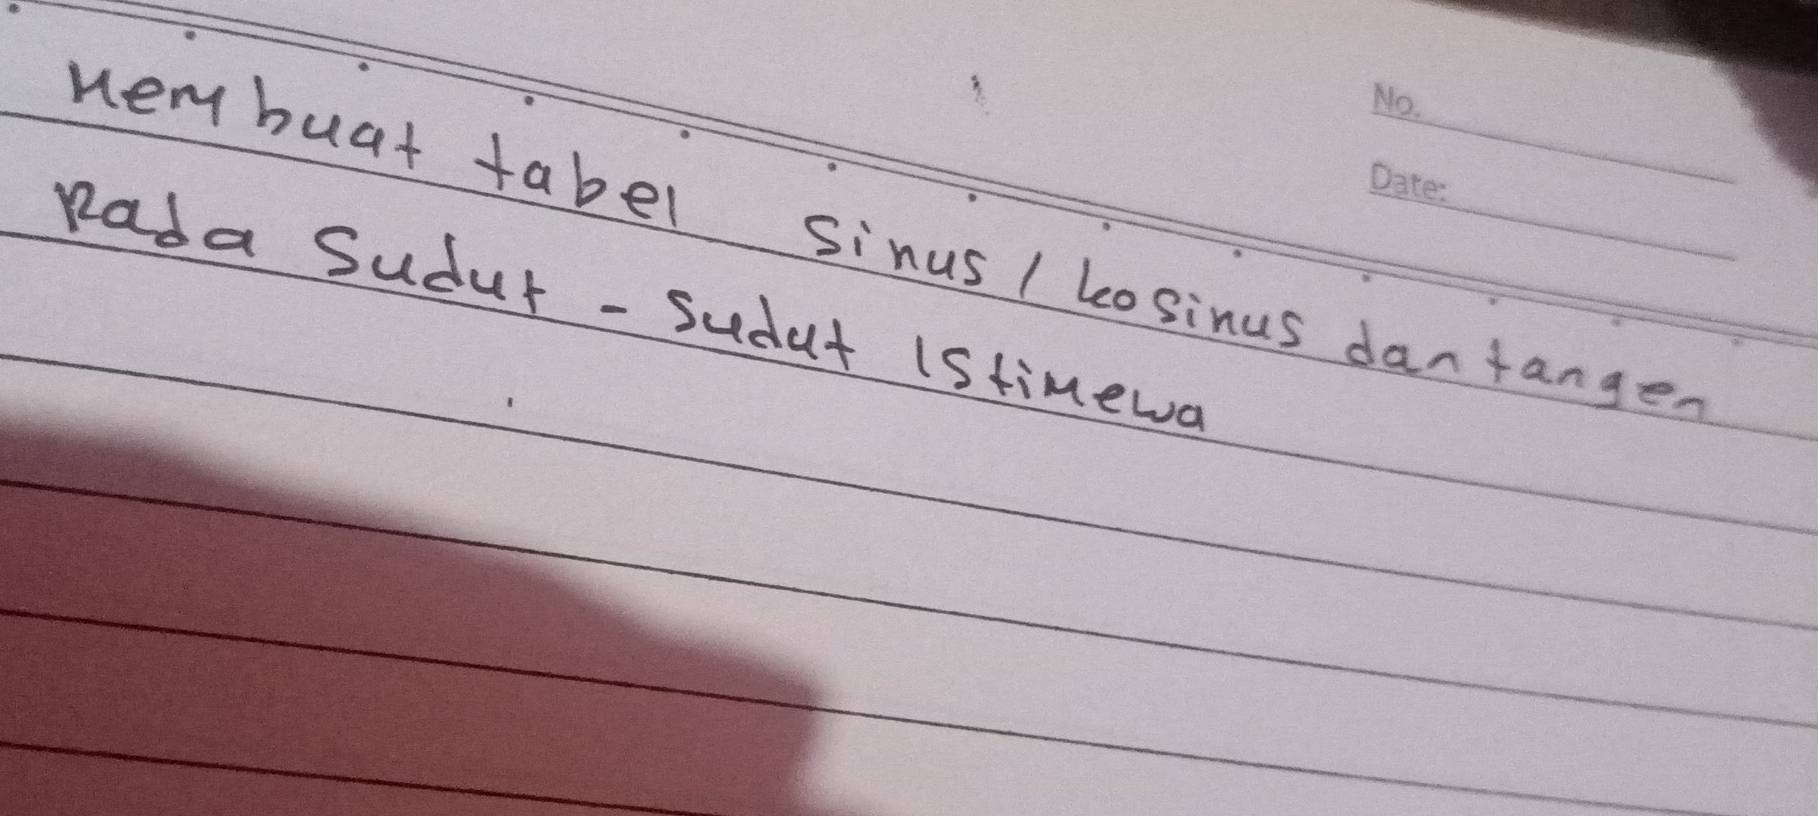 No.
Date:
Membuat tabel sinus, kosinus dan tangen
Pada Sudut - Sudut istimewa